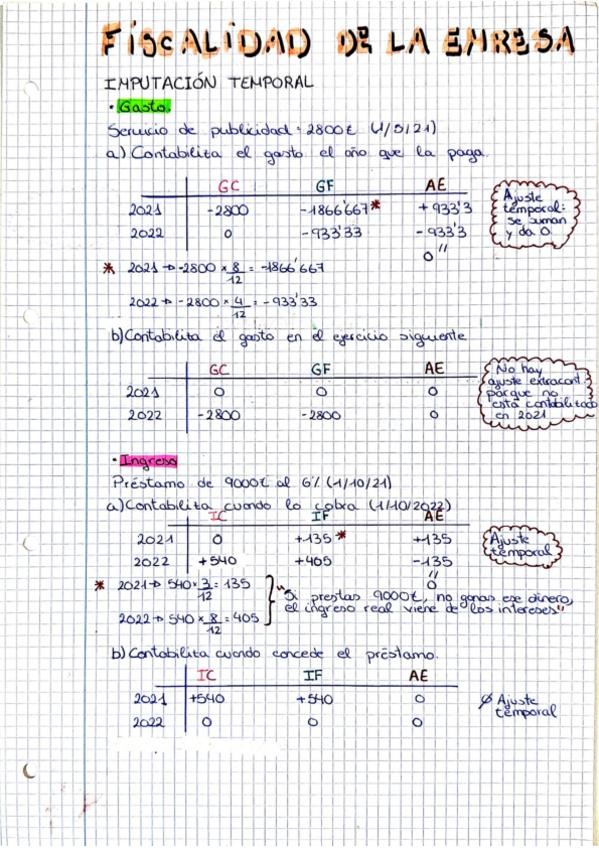 FISCALIDAD DE LA EMRESA
IMPUTACIÓN TEMPORAL
• Gasto.
Servicio de publicidad: 2800€ (1/5/21)
a) Contabiliza el gasto el año que la paga.
GC GF AE
2021 -2800 -1866'667* +933'3
2022 0 -933'33 -933'3
0"
Ajuste
temporal:
se suman
y da 0.
* 2021 → -2800 × 8/12 = -1866'667
2022 → -2800 × 4/12 = -933'33
b) Contabiliza el gasto en el ejercicio siguiente
GC GF AE
2021 0 0 0
2022 -2800 -2800 0
No hay
ajuste extracont.
porque no
está contabilizado
en 2021
• Ingreso
Préstamo de 9000€ al 6% (1/10/21)
a) Contabiliza cuando lo cobra (1/10/2022)
IC IF AE
2021 0 +135* +135
2022 +540 +405 -135
"
0
Ajuste
temporal
* 2021 → 540 × 3/12 = 135
2022 → 540 × 8/12 = 405
"Si prestas 9000€, no ganas ese dinero,
el ingreso real viene de los intereses"
b) Contabiliza cuando concede el préstamo.
IC IF AE
2021 +540 +540 0
2022 0 0 0
∅ Ajuste
temporal